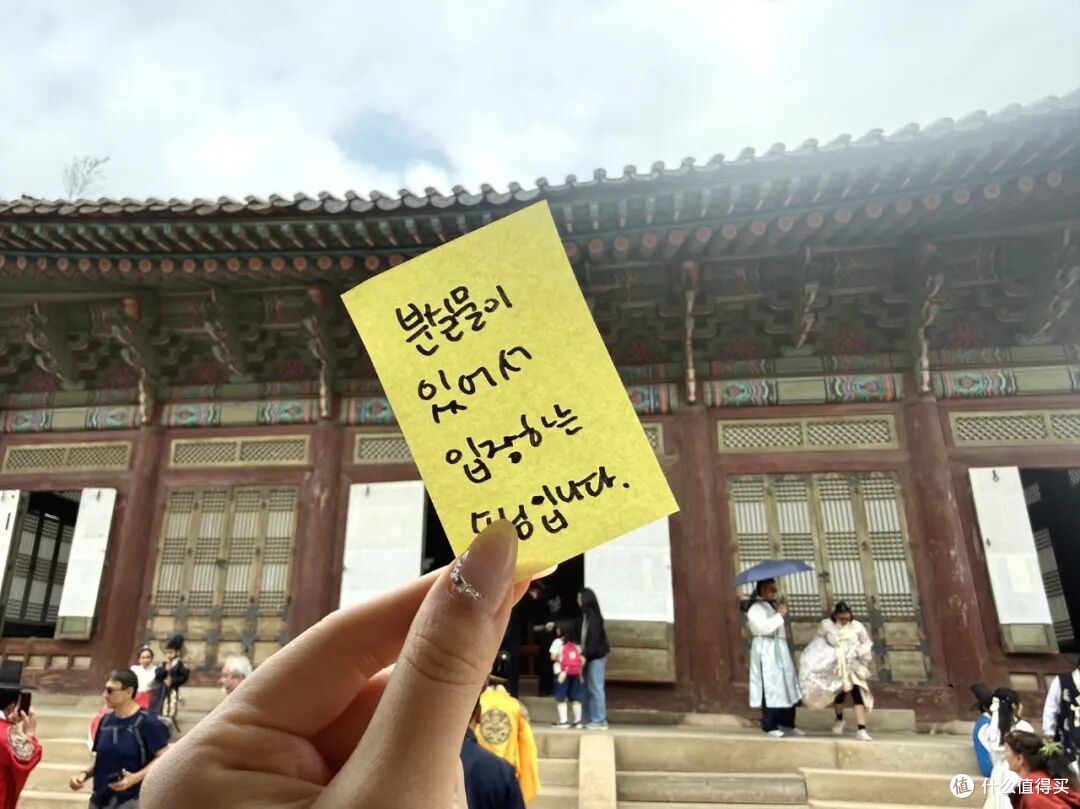 분실물이
있어서
입장하는
손님입니다.
值 什么值得买